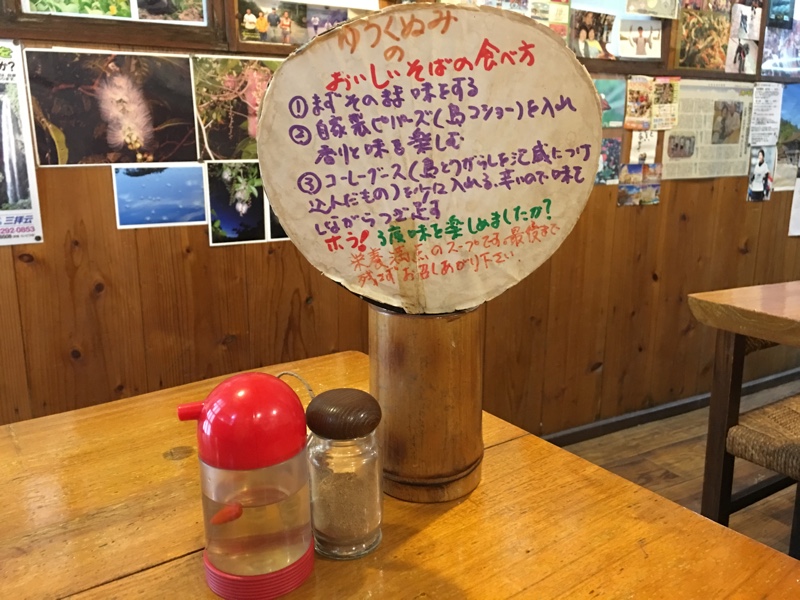 ゆうくぬみ
の
おいしいそばの食べ方
①まずそのまま味をする
②自家製ピパーズ(島コショー)を入れ
香りと味を楽しむ
③コーレーグース(島とうがらしを泡盛につけ
込んだもの)を少々入れる、辛いので味を
しながらつぎ足す
ホラ!3度味を楽しめましたか?
栄養満点のスープです。最後まで
残さずお召しあがり下さい。
か?
三拝云
292-0853